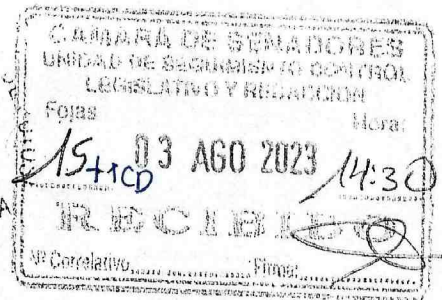 CAMARA DE SENADORES
UNIDAD DE SEGUIMIENTO CONTROL
LEGISLATIVO Y REDACCION
Fojas Hora:
15++CD 03 AGO 2023 14:30
RECIBIDO
Nº Correlativo Firma: